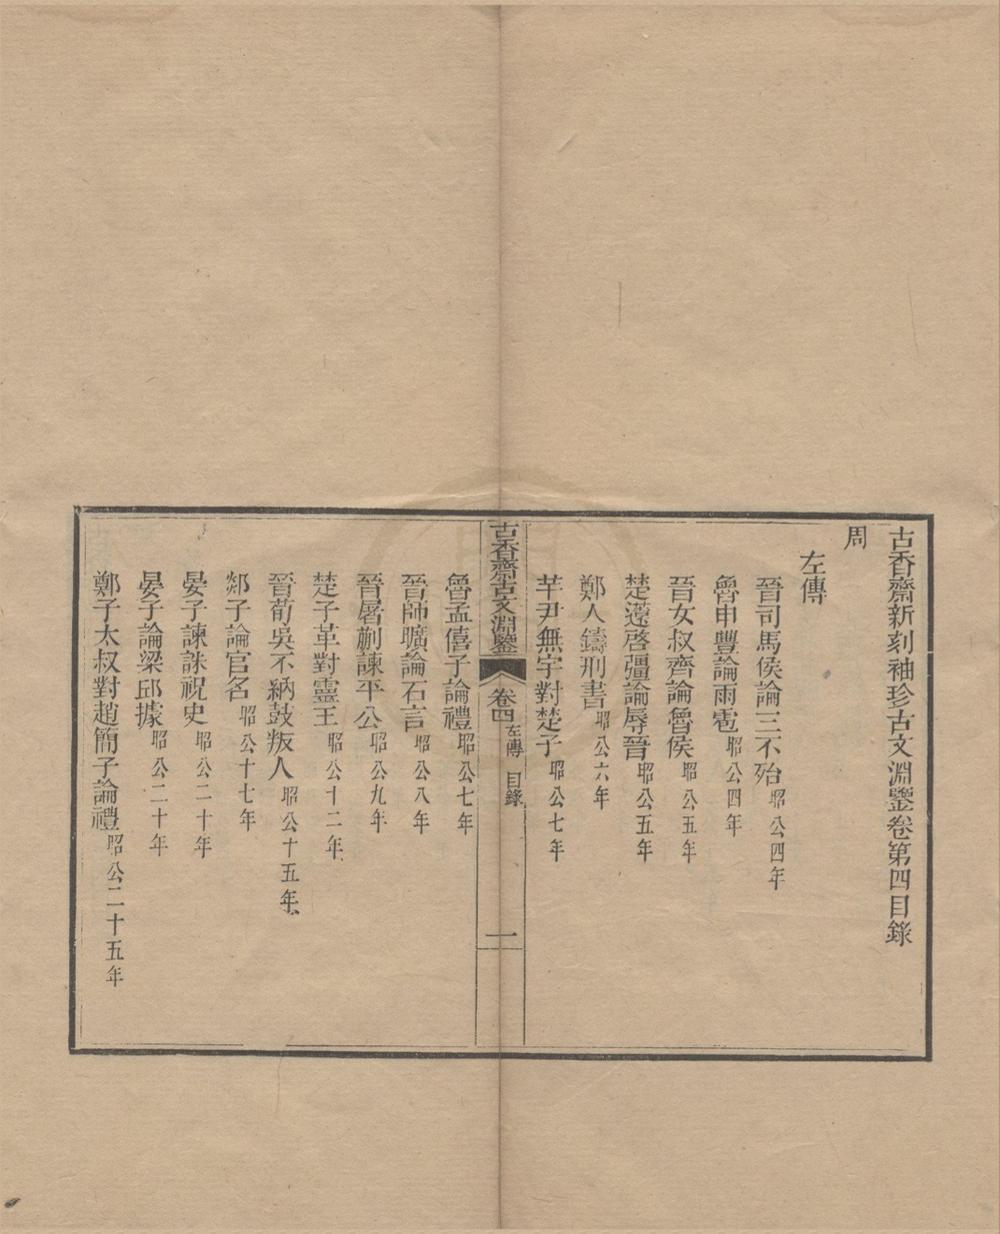 古香齋新刻袖珍古文淵鑒卷第四目錄
周
左傳
晉司馬侯論三不殆昭公四年
魯申豐論雨雹昭公四年
晉女叔齊論魯侯昭公五年
楚薳啓彊論辱晉昭公五年
鄭人鑄刑書昭公六年
芊尹無宇對楚子昭公七年
古香齋古文淵鑒 卷四 左傳 目錄 一
魯孟僖子論禮昭公七年
晉師曠論石言昭公八年
晉屠蒯諫平公昭公九年
楚子革對靈王昭公十二年
晉荀吳不納鼓叛人昭公十五年
郯子論官名昭公十七年
晏子諫誅祝史昭公二十年
晏子論梁邱據昭公二十年
鄭子太叔對趙簡子論禮昭公二十五年